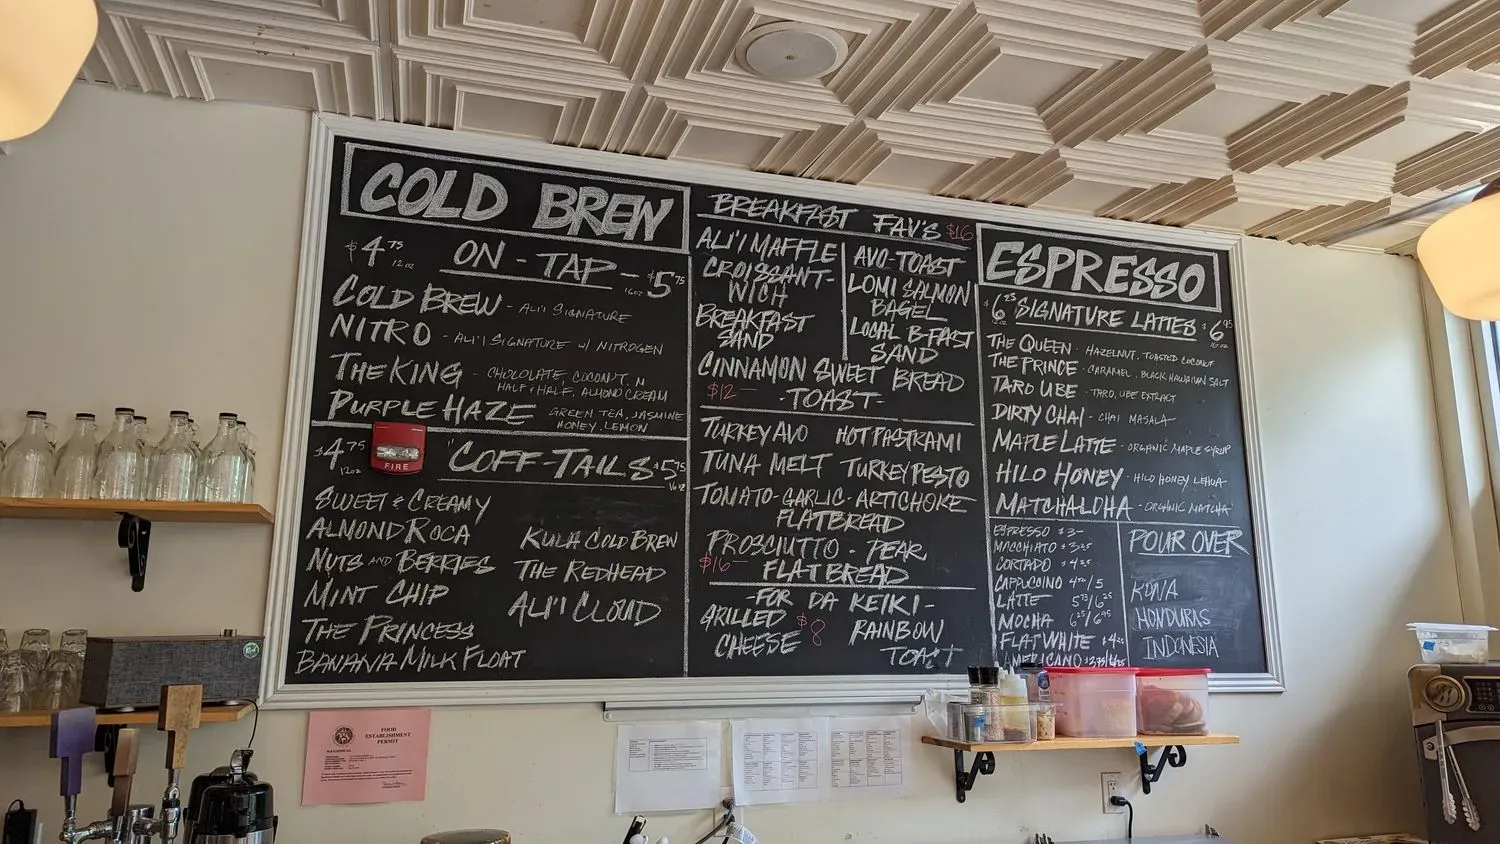 COLD BREW
$4.75 12oz ON-TAP - 16oz $5.75
COLD BREW - ALI'I SIGNATURE
NITRO - ALI'I SIGNATURE W/ NITROGEN
THE KING - CHOCOLATE, COCONUT, M
HALF & HALF, ALMOND CREAM
PURPLE HAZE GREEN TEA, JASMINE
HONEY, LEMON
$4.75 12oz "COFF-TAILS $5.75 16oz
FIRE
SWEET & CREAMY
ALMOND ROCA
NUTS AND BERRIES
MINT CHIP
THE PRINCESS
BANANA MILK FLOAT
KULA COLD BREW
THE REDHEAD
ALI'I CLOUD
BREAKFAST FAV'S $16
ALI'I MAFFLE
CROISSANT-
WICH
BREAKFAST
SAND
AVO-TOAST
LOMI SALMON
BAGEL
LOCAL B-FAST
SAND
CINNAMON SWEET BREAD
$12 -TOAST-
TURKEY AVO HOT PASTRAMI
TUNA MELT TURKEY PESTO
TOMATO-GARLIC-ARTICHOKE
FLATBREAD
PROSCIUTTO - PEAR
$16- FLATBREAD
-FOR DA KEIKI-
GRILLED
CHEESE $8
RAINBOW
TOAST
ESPRESSO
$6.25 12oz SIGNATURE LATTES $6.95 16oz
THE QUEEN - HAZELNUT, TOASTED COCONUT
THE PRINCE - CARAMEL, BLACK HAWAIIAN SALT
TARO UBE - TARO, UBE EXTRACT
DIRTY CHAI - CHAI MASALA
MAPLE LATTE - ORGANIC MAPLE SYRUP
HILO HONEY - HILO HONEY LEHUA
MATCHALOHA - ORGANIC MATCHA
ESPRESSO $3-
MACCHIATO $3.25
CORTADO $4.25
CAPPUCCINO 4.50/5
LATTE 5.75/6.25
MOCHA 6.25/6.95
FLAT WHITE $4.25
AMERICANO $3.75/4.25
POUR OVER
KONA
HONDURAS
INDONESIA
FOOD
ESTABLISHMENT
PERMIT